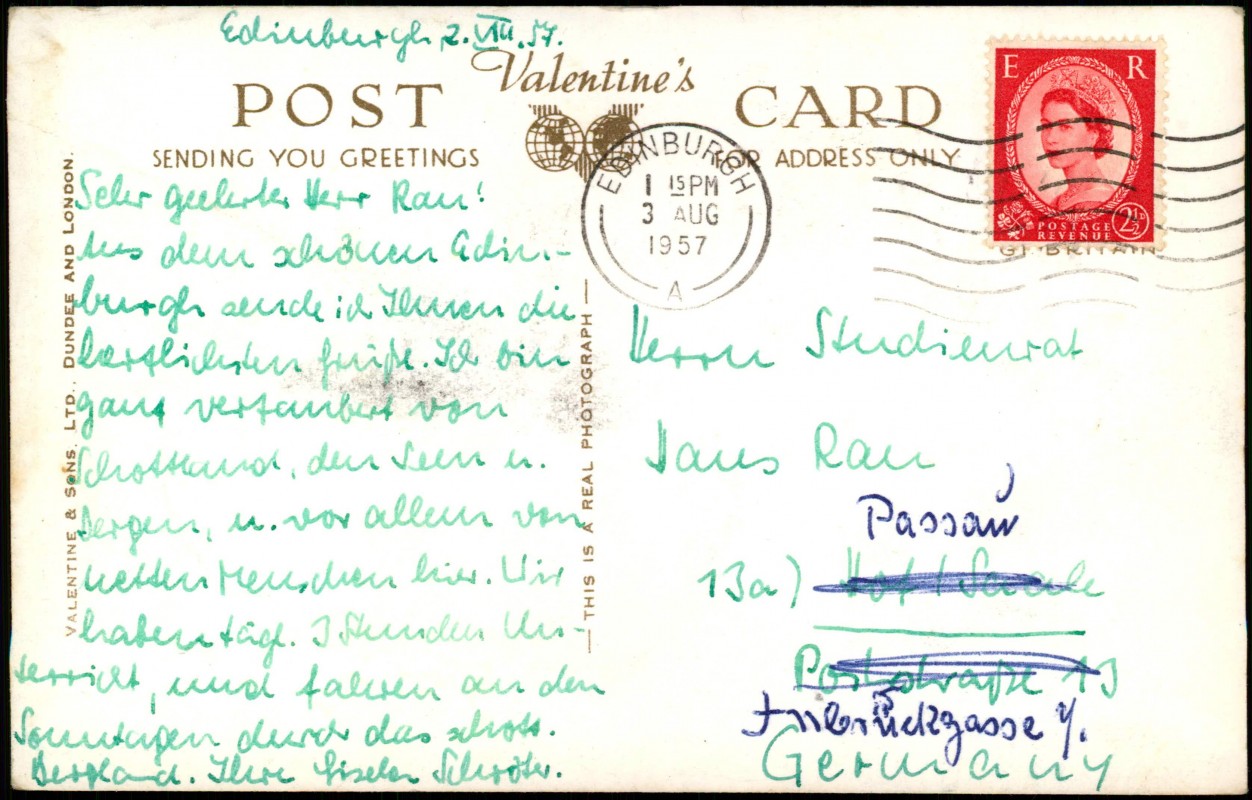 Edinburgh, 2. VIII. 57.
Valentine's
POST CARD
SENDING YOU GREETINGS
FOR ADDRESS ONLY
E R
POSTAGE
REVENUE
2½D
EDINBURGH
1 15 PM
3 AUG
1957
A
GT. BRITAIN
VALENTINE & SONS, LTD., DUNDEE AND LONDON.
THIS IS A REAL PHOTOGRAPH
Sehr geehrter Herr Rau!
Aus dem schönen Edin-
burgh sende ich Ihnen die
herzlichsten Grüße. Ich bin
ganz verzaubert von
Schottland, den Seen u.
Bergen, u. vor allem von
netten Menschen hier. Wir
haben tägl. 3 Stunden Un-
terricht, und fahren an den
Sonntagen durch das schott.
Bergland. Ihre Gisela Schröter.
Herrn Studienrat
Hans Rau
Passau
13a) Hof/Saale
Poststraße 13
Innbrückgasse
Germany